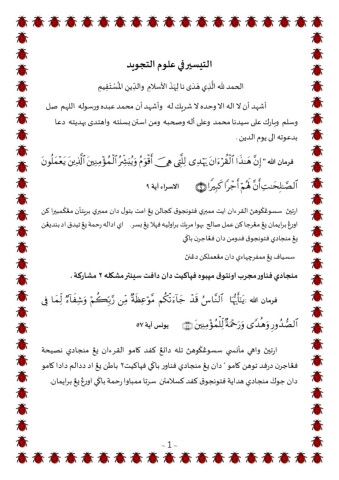 التيسير في علوم التجويد
الحمد لله الّذي هَدٰى نا لِهٰذَ الأسلام والدّين المُسْتَقِيم
أشهد أن لا اله الا وحده لا شريك له وأشهد أن محمد عبده ورسوله اللهم صل
وسلم وبارك على سيدنا محمد وعلى أله وصحبه ومن استن بسنته واهتدى بهديته دعا
بدعوته الى يوم الدين .
فرمان الله " إِنَّ هَٰذَا ٱلْقُرْءَانَ يَهْدِى لِلَّتِى هِىَ أَقْوَمُ وَيُبَشِّرُ ٱلْمُؤْمِنِينَ ٱلَّذِينَ يَعْمَلُونَ
ٱلصَّٰلِحَٰتِ أَنَّ لَهُمْ أَجْرًا كَبِيرًا ۝ الاسراء أية ٩
ارتيڽ سسوڠݢوهڽ القرءان ايت ممبري فتونجوق كجالن يڠ امت بتول دان ممبري بريتأن مڠݢمبيرا كن
اورڠ برايمان يڠ مڠرجا كن عمل صالح
يڠ منجادي فتونجوق فدومن دان فڠاجرن باݢي
سسياف يڠ ممفرچيأءي دان مڠعملكن دڠنڽ
منجادي فناور مجرب اونتوق ميمبوه فڽاكيت دان دافت سينتر مشكله ٢ مشاركة .
فرمان الله يَٰٓأَيُّهَا ٱلنَّاسُ قَدْ جَآءَتْكُم مَّوْعِظَةٌ مِّن رَّبِّكُمْ وَشِفَآءٌ لِّمَا فِى
ٱلصُّدُورِ وَهُدًى وَرَحْمَةٌ لِّلْمُؤْمِنِينَ ۝ يونس أية ٥٧
ارتيڽ واهي مأنسي سسوڠݢوهڽ تله داتڠ كفد كامو القرءان يڠ منجادي نصيحة
فڠاجرن درفد توهن كامو ' دان يڠ منجادي فناور باݢي فڽاكيت٢ باطن يڠ اد ددالم دادا كامو
دان جوݢ منجادي هداية فتونجوق كفد كسلامتن سرتا ممباوا رحمة باݢي اورڠ يڠ برايمان.
~ 1 ~